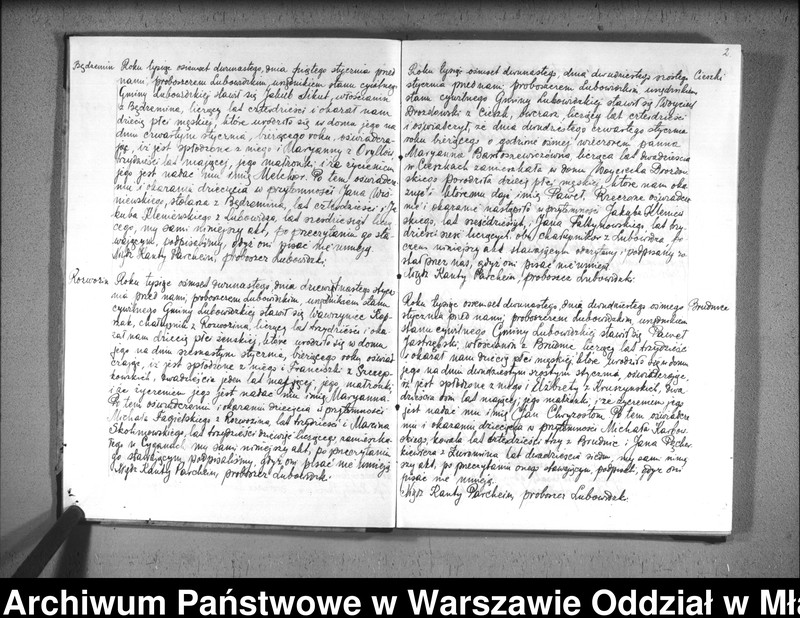 Będzemin Roku tysiąc ośmset dwunastego, dnia piątego stycznia przed
nami, proboszczem Lubowidzkim, urzędnikiem stanu cywilnego
Gminy Lubowidzkiej stawił się Jakub, włościanin
z Będzemina, liczący lat czterdzieści i okazał nam
dziecię płci męskiej, które urodziło się w domu jego na
dniu czwartym stycznia, bieżącego roku, oświadcza-
jąc, iż jest spłodzone z niego i Maryanny z
trzydzieści lat mającej, jego małżonki i że życzeniem
jego jest nadać mu imię Melchor. Po tem oświadcze-
niu i okazaniu dziecięcia w przytomności Jana Wiś-
niewskiego, stolarza z Będzemina, lat czterdzieści i Ja-
kuba Kleniewskiego z Lubowidza, lat sześćdziesiąt liczą-
cego, my sami niniejszy akt, po przeczytaniu go sta-
wającym, podpisaliśmy, gdyż oni pisać nie umieją.
Mjr Kanty Parcheim, proboszcz Lubowidzki.
Rozwozin Roku tysiąc ośmset dwunastego, dnia dziewiętnastego stycz-
nia przed nami, proboszczem Lubowidzkim, urzędnikiem stanu
cywilnego Gminy Lubowidzkiej stawił się Wawrzyniec
chałupnik z Rozwozina, liczący lat trzydzieści i oka-
zał nam dziecię płci żeńskiej, które urodziło się w domu
jego na dniu szesnastym stycznia, bieżącego roku, oświad-
czając, iż jest spłodzone z niego i Franciszki z Szczep-
kowskich, dwadzieścia jeden lat mającej, jego małżonki
i że życzeniem jego jest nadać mu imię Maryanna.
Po tem oświadczeniu i okazaniu dziecięcia w przytomności
Michała Fagielskiego z Rozwozina, lat trzydzieści i Marcina
Skolimowskiego, lat trzydzieści dziewięć liczącego zamieszka-
łego w, my sami niniejszy akt, po przeczytaniu
go stawającym, podpisaliśmy, gdyż oni pisać nie umieją.
Mjr Kanty Parcheim, proboszcz Lubowidzki.
2
Roku tysiąc ośmset dwunastego, dnia dwudziestego szóstego Cieszki
stycznia przed nami, proboszczem Lubowidzkim urzędnikiem
stanu cywilnego Gminy Lubowidzkiej stawił się Woyciech
Drozdowski z Cieszk, liczący lat czterdzieści
i oświadczył, że dnia dwudziestego czwartego stycznia
roku bieżącego o godzinie ósmej wieczorem panna
Maryanna Bartoszewiczówna, licząca lat dwadzieścia
w Cieszkach zamieszkała w domu Woyciecha Drozdow-
skiego porodziła dziecię płci męskiej, które nam oka-
zuje i któremu daje imię Paweł. Rzeczone oświadcze-
nie i okazanie nastąpiło w przytomności Jakóba Kleniew-
skiego, lat sześćdziesiąt, Jana Falkunowskiego lat trzy-
dzieści sześć liczących, obu chałupników z Lubowidza, po
czem niniejszy akt stawającym odczytany i podpisany zo-
stał przez nas, gdyż oni pisać nie umieją.
Mjr Kanty Parcheim, proboszcz Lubowidzki.
Roku tysiąc ośmset dwunastego, dnia dwudziestego ósmego Brudnice
stycznia przed nami, proboszczem Lubowidzkim, urzędnikiem
stanu cywilnego Gminy Lubowidzkiej stawił się Paweł
Jastrzębski, włościanin z Brudnic liczący lat trzydzieści
i okazał nam dziecię płci męskiej, które urodziło się w domu
jego na dniu dwudziestym szóstym stycznia, oświadczając,
iż jest spłodzone z niego i Elżbiety z Kruszyńskich, dwa-
dzieścia ośm lat mającej, jego małżonki, i że życzeniem jego
jest nadać mu imię Jan Chryzostom. Po tem oświadcze-
niu i okazaniu dziecięcia w przytomności Michała Karbow-
skiego, kowala lat czterdzieści trzy z Brudnic i Jana
z Żuromina lat dwadzieścia siedm, my sami niniej-
szy akt, po przeczytaniu onego stawającym, podpisali, gdyż oni
pisać nie umieją.
Mjr Kanty Parcheim, proboszcz Lubowidzki.
Archiwum Państwowe w Warszawie Oddział w Mła